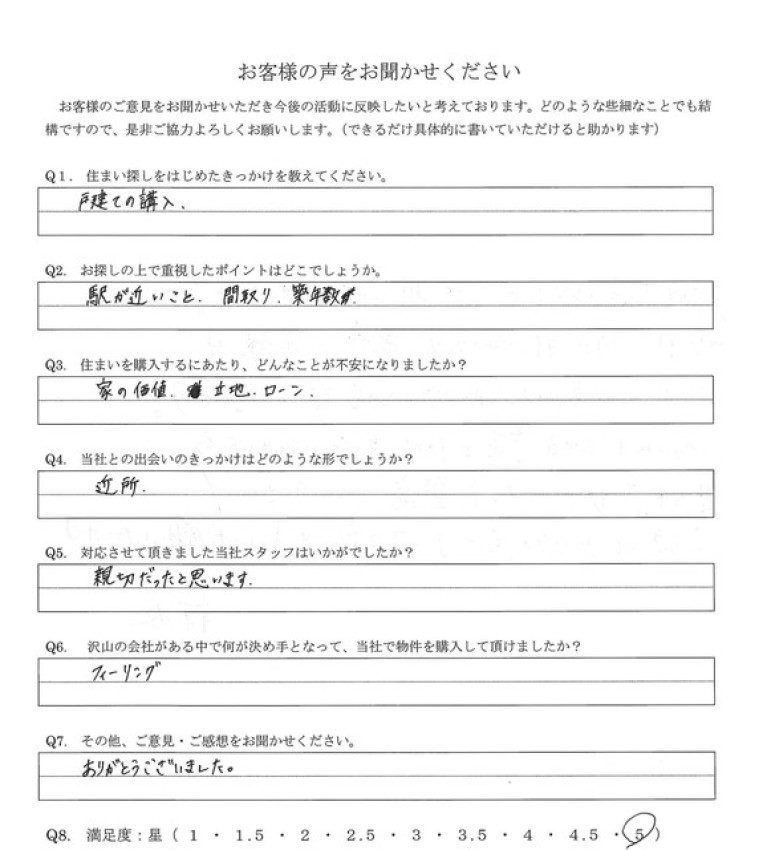 お客様の声をお聞かせください
お客様のご意見をお聞かせいただき今後の活動に反映したいと考えております。どのような些細なことでも結
構ですので、是非ご協力よろしくお願いします。（できるだけ具体的に書いていただけると助かります）
Q1. 住まい探しをはじめたきっかけを教えてください。
戸建ての購入.
Q2. お探しの上で重視したポイントはどこでしょうか。
駅が近いこと. 間取り. 築年数.
Q3. 住まいを購入するにあたり、どんなことが不安になりましたか？
家の価値. 立地. ローン.
Q4. 当社との出会いのきっかけはどのような形でしょうか？
近所.
Q5. 対応させて頂きました当社スタッフはいかがでしたか？
親切だったと思います.
Q6. 沢山の会社がある中で何が決め手となって、当社で物件を購入して頂けましたか？
フィーリング
Q7. その他、ご意見・ご感想をお聞かせください。
ありがとうございました。
Q8. 満足度：星（ 1 ・ 1.5 ・ 2 ・ 2.5 ・ 3 ・ 3.5 ・ 4 ・ 4.5 ・ 5 ）